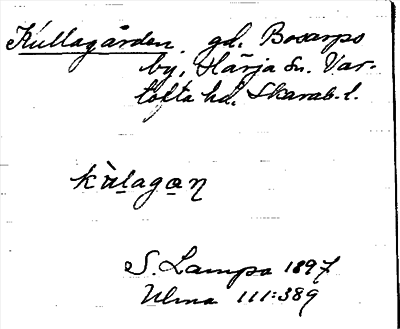 Kullagården, gd. Bosarps
by, Härja sn. Var-
tofta hd. Skarab. l.
kùlagan
S. Lampa 1897
Ulma 111:389